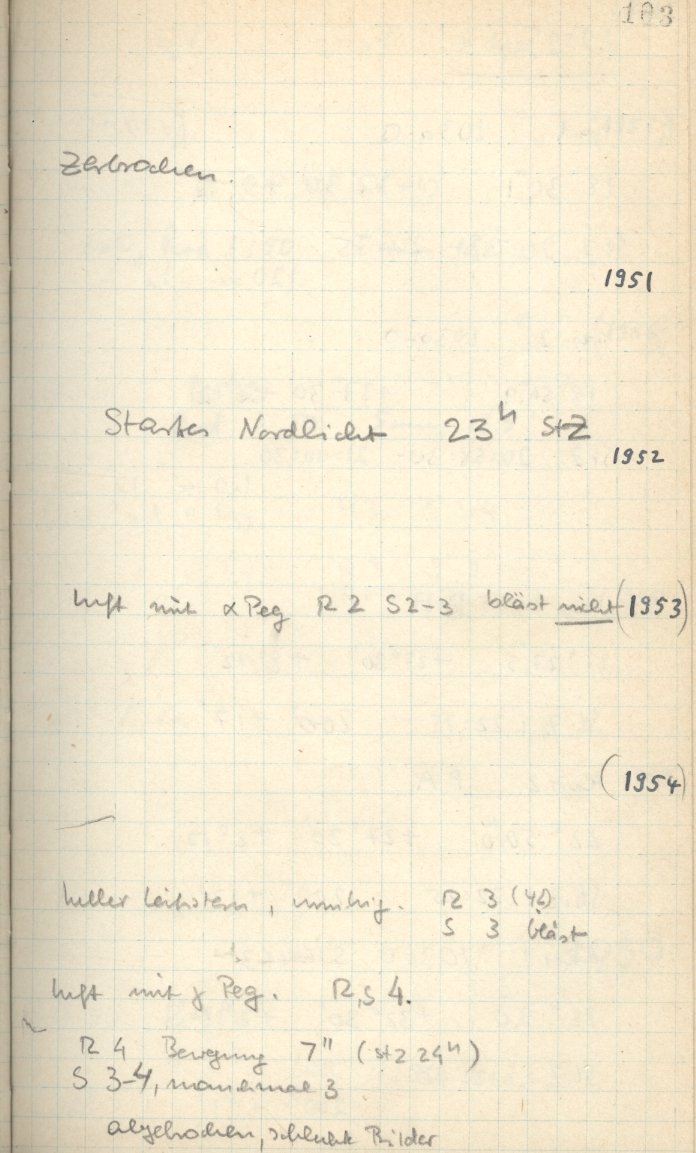 103
Zerbrochen.
1951
Starkes Nordlicht 23h StZ
1952
Luft mit α Peg R 2 S 2-3 bläst nicht (1953)
(1954)
heller Leitstern, unruhig. R 3 (4?)
S 3 bläst
Luft mit γ Peg. R, S 4.
R 4 Bewegung 7" (StZ 24h)
S 3-4, manchmal 3
abgebrochen, schlechte Bilder